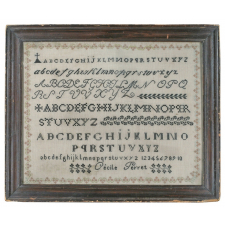 ABCDEFGHIJKLMNOPQRSTUVXYZ
abcdefghiklmnopqrstuvxyz
ABCDEFGHIJKLMNOPQ
RSTUVXYZ
ABCDEFGHIJKLMNOPQR
STUVXYZ
ABCDEFGHIJKLMNO
PQRSTUVXYZ
abcdefghijklmnopqrstuvxyz 12345678910
Cécile Perret